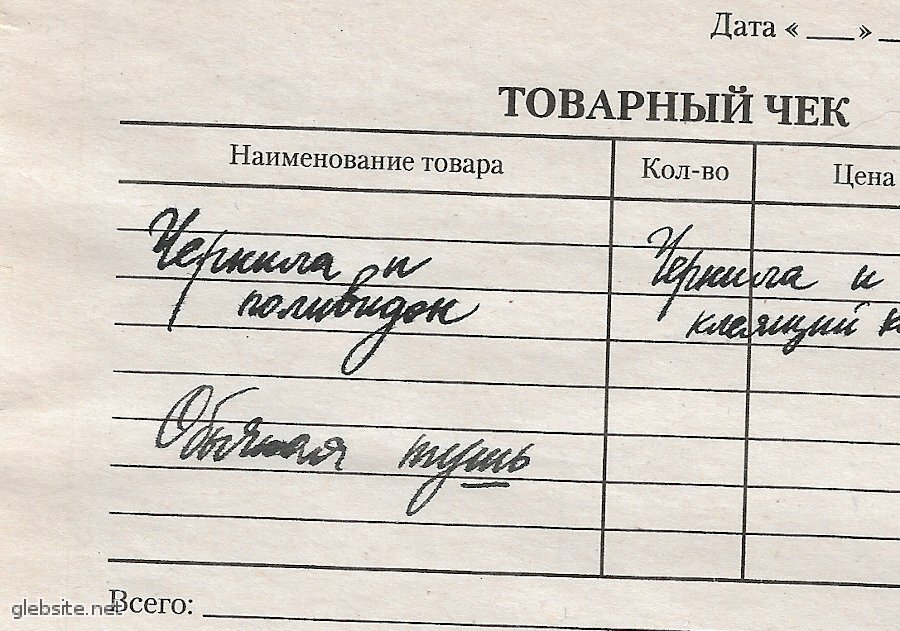 Дата « ___ » _
ТОВАРНЫЙ ЧЕК
Наименование товара Кол-во Цена
Чернила и Чернила и
поливидон клеящий к
Обычная тушь
Всего:
glebsite.net